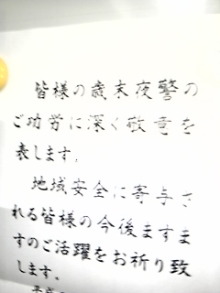 皆様の歳末夜警の
ご功労に深く敬意を
表します。
地域安全に寄与さ
れる皆様の今後ますま
すのご活躍をお祈り致
します。